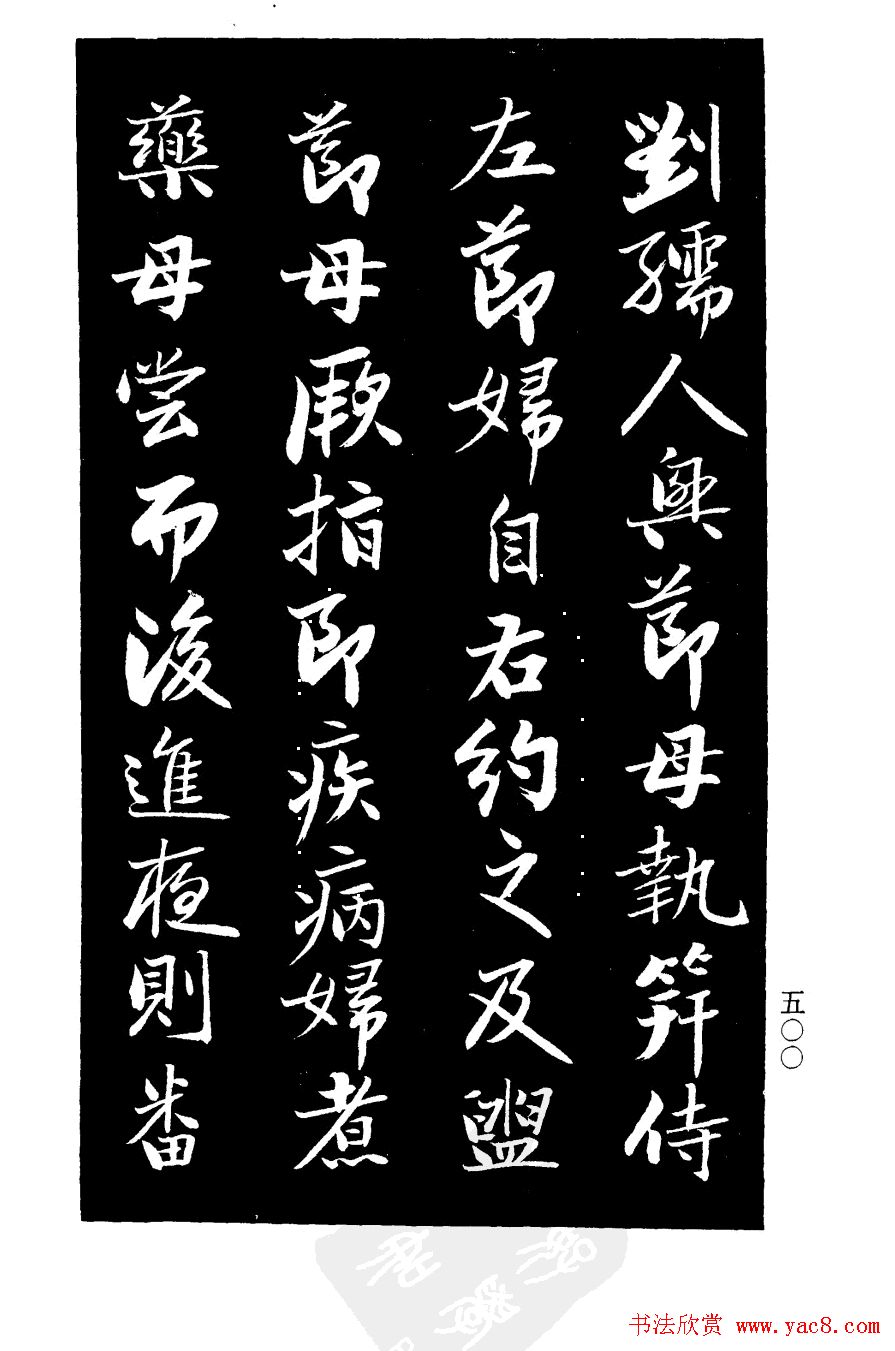 劉孺人與莭母執笄侍
左莭婦自右約之及盥
莭母厥指即疾病婦煮
藥母尝而後進夜則番
五〇〇
书法欣赏 www.yac8.com